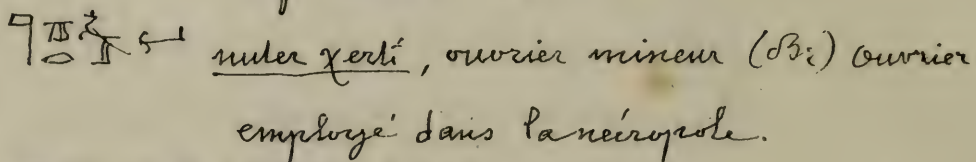 nuter χerti, ouvrier mineur (Bi) ouvrier
employé dans la nécropole.